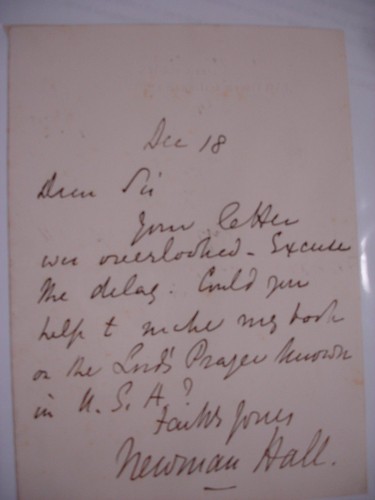 Dec 18
Dear Sir
Your letter
was overlooked - Excuse
the delay. Could you
help to make my book
on the Lord's Prayer known
in U.S.A?
Faithf yours
Newman Hall.